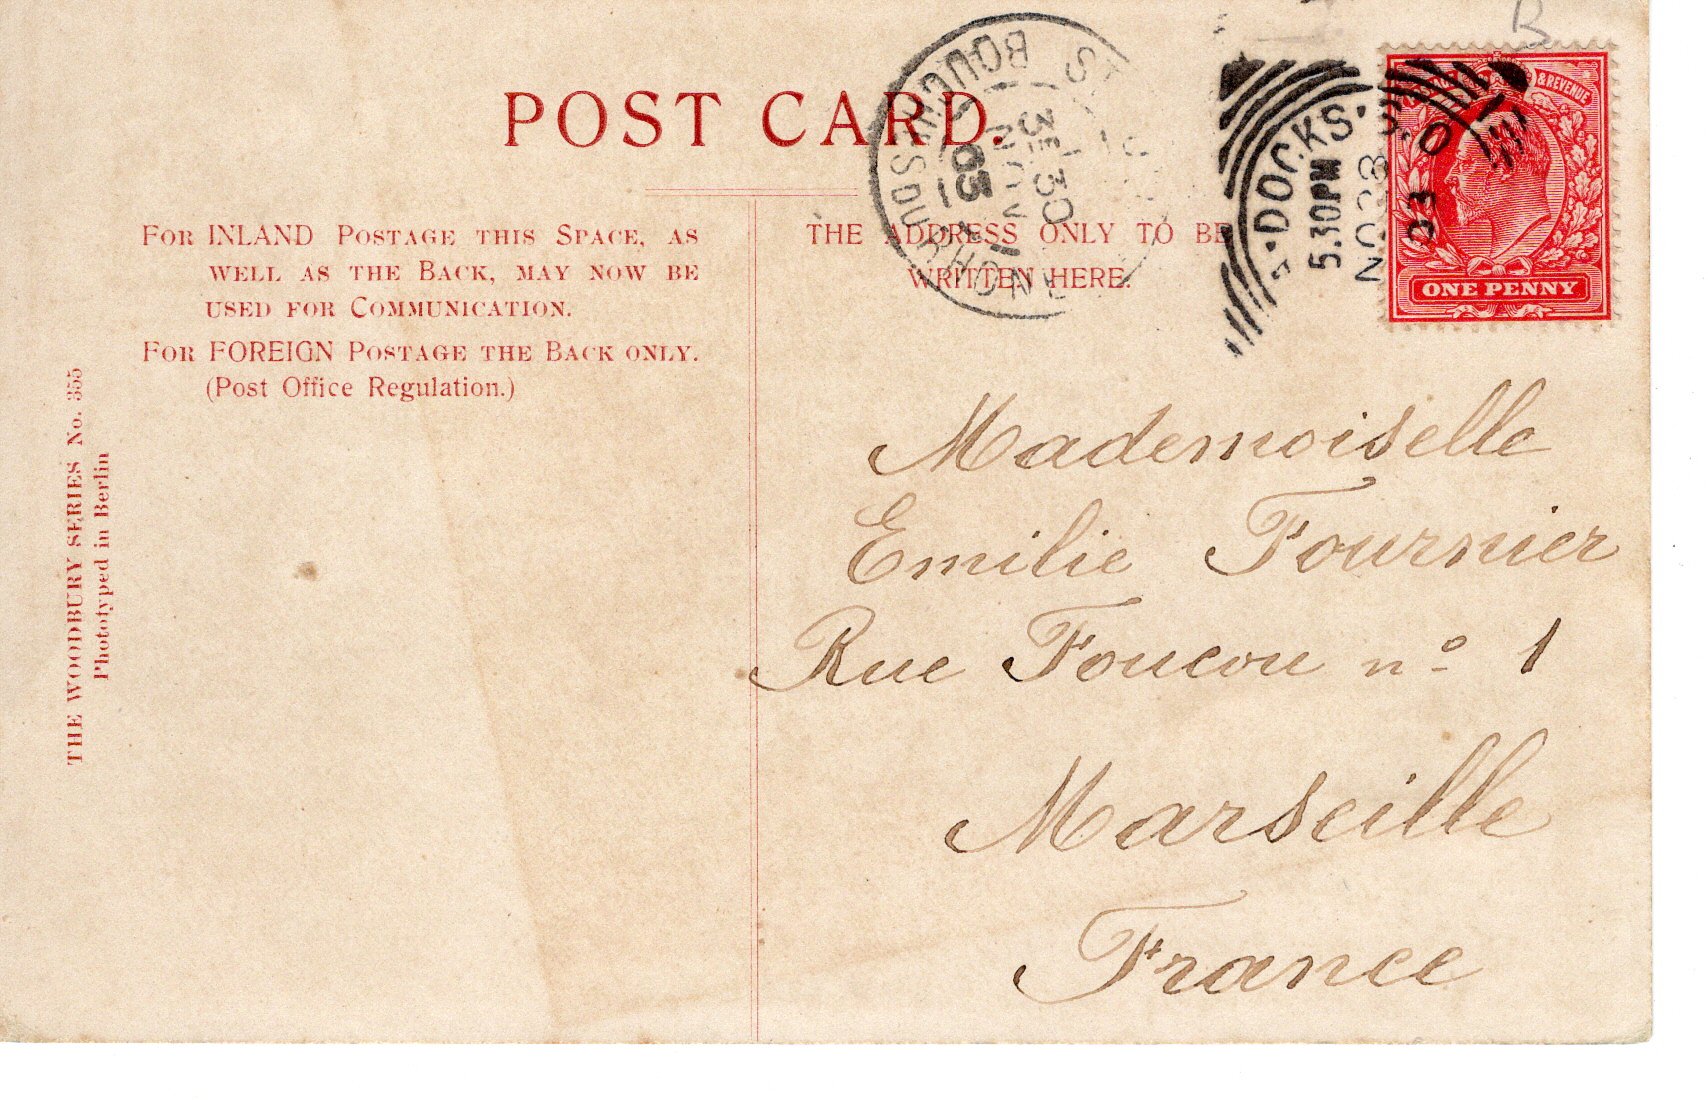 POST CARD.
FOR INLAND POSTAGE THIS SPACE, AS
WELL AS THE BACK, MAY NOW BE
USED FOR COMMUNICATION.
FOR FOREIGN POSTAGE THE BACK ONLY.
(Post Office Regulation.)
THE WOODBURY SERIES No. 355
Phototyped in Berlin
THE ADDRESS ONLY TO BE
WRITTEN HERE.
BOUCHES-DU-RHONE
3E 1 30
03
DOCKS
5.30PM
NO 28
03
& REVENUE
ONE PENNY
B
Mademoiselle
Emilie Fournier
Rue Foucou no 1
Marseille
France